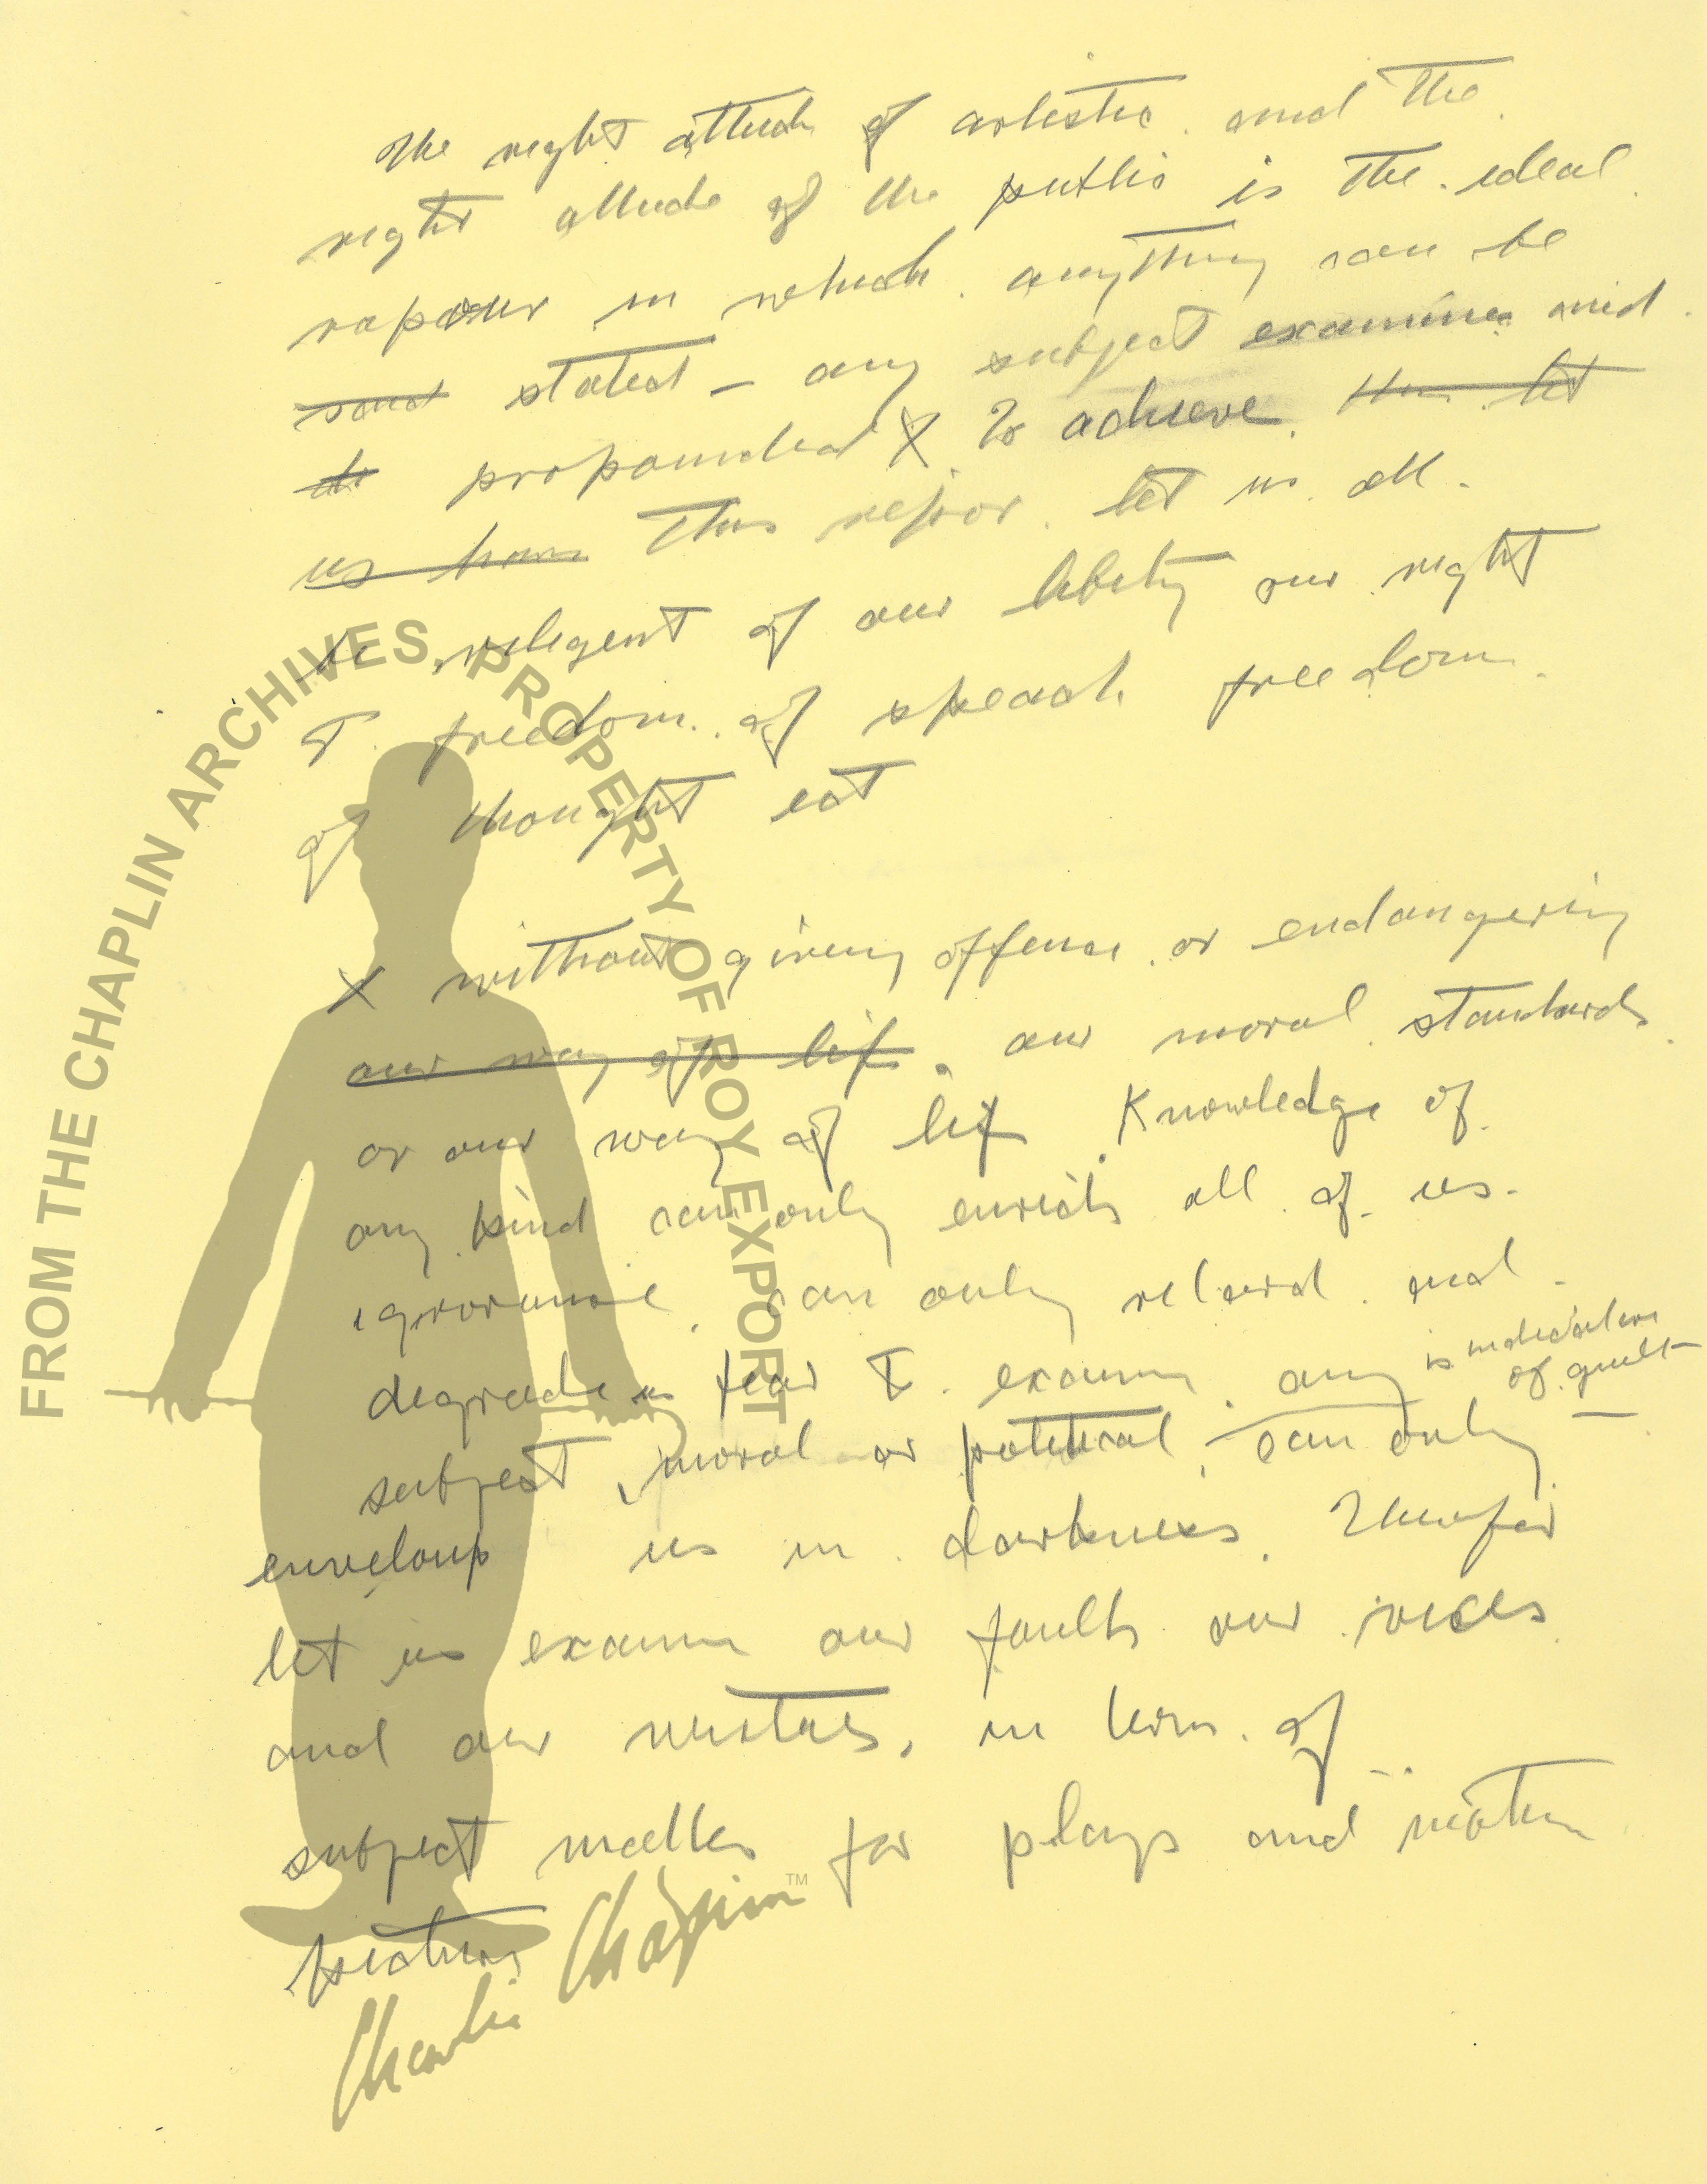 The right attude of artistic and the
right attude of the public is the ideal
rapour in which anything can be
said stated – any subject examine and
propounded X To achieve then let
us have this repor let us all
be veligent of our libety our right
to freedom of speach freedom
of thought ect
X without giving offense or endangering
our way of life, our moral standards
or our way of life Knowledge of
any kind can only enrich all of us.
ignorance can only retard and
degrade us fear to examin any is indication
of guilt –
subject, moral or political, can only
enveloup us in darkness. Therefor
let us examin our faults our vices
and our virtues, in term of
subject matter for plays and motion
pictures
FROM THE CHAPLIN ARCHIVES, PROPERTY OF ROY EXPORT
Charlie Chaplin™